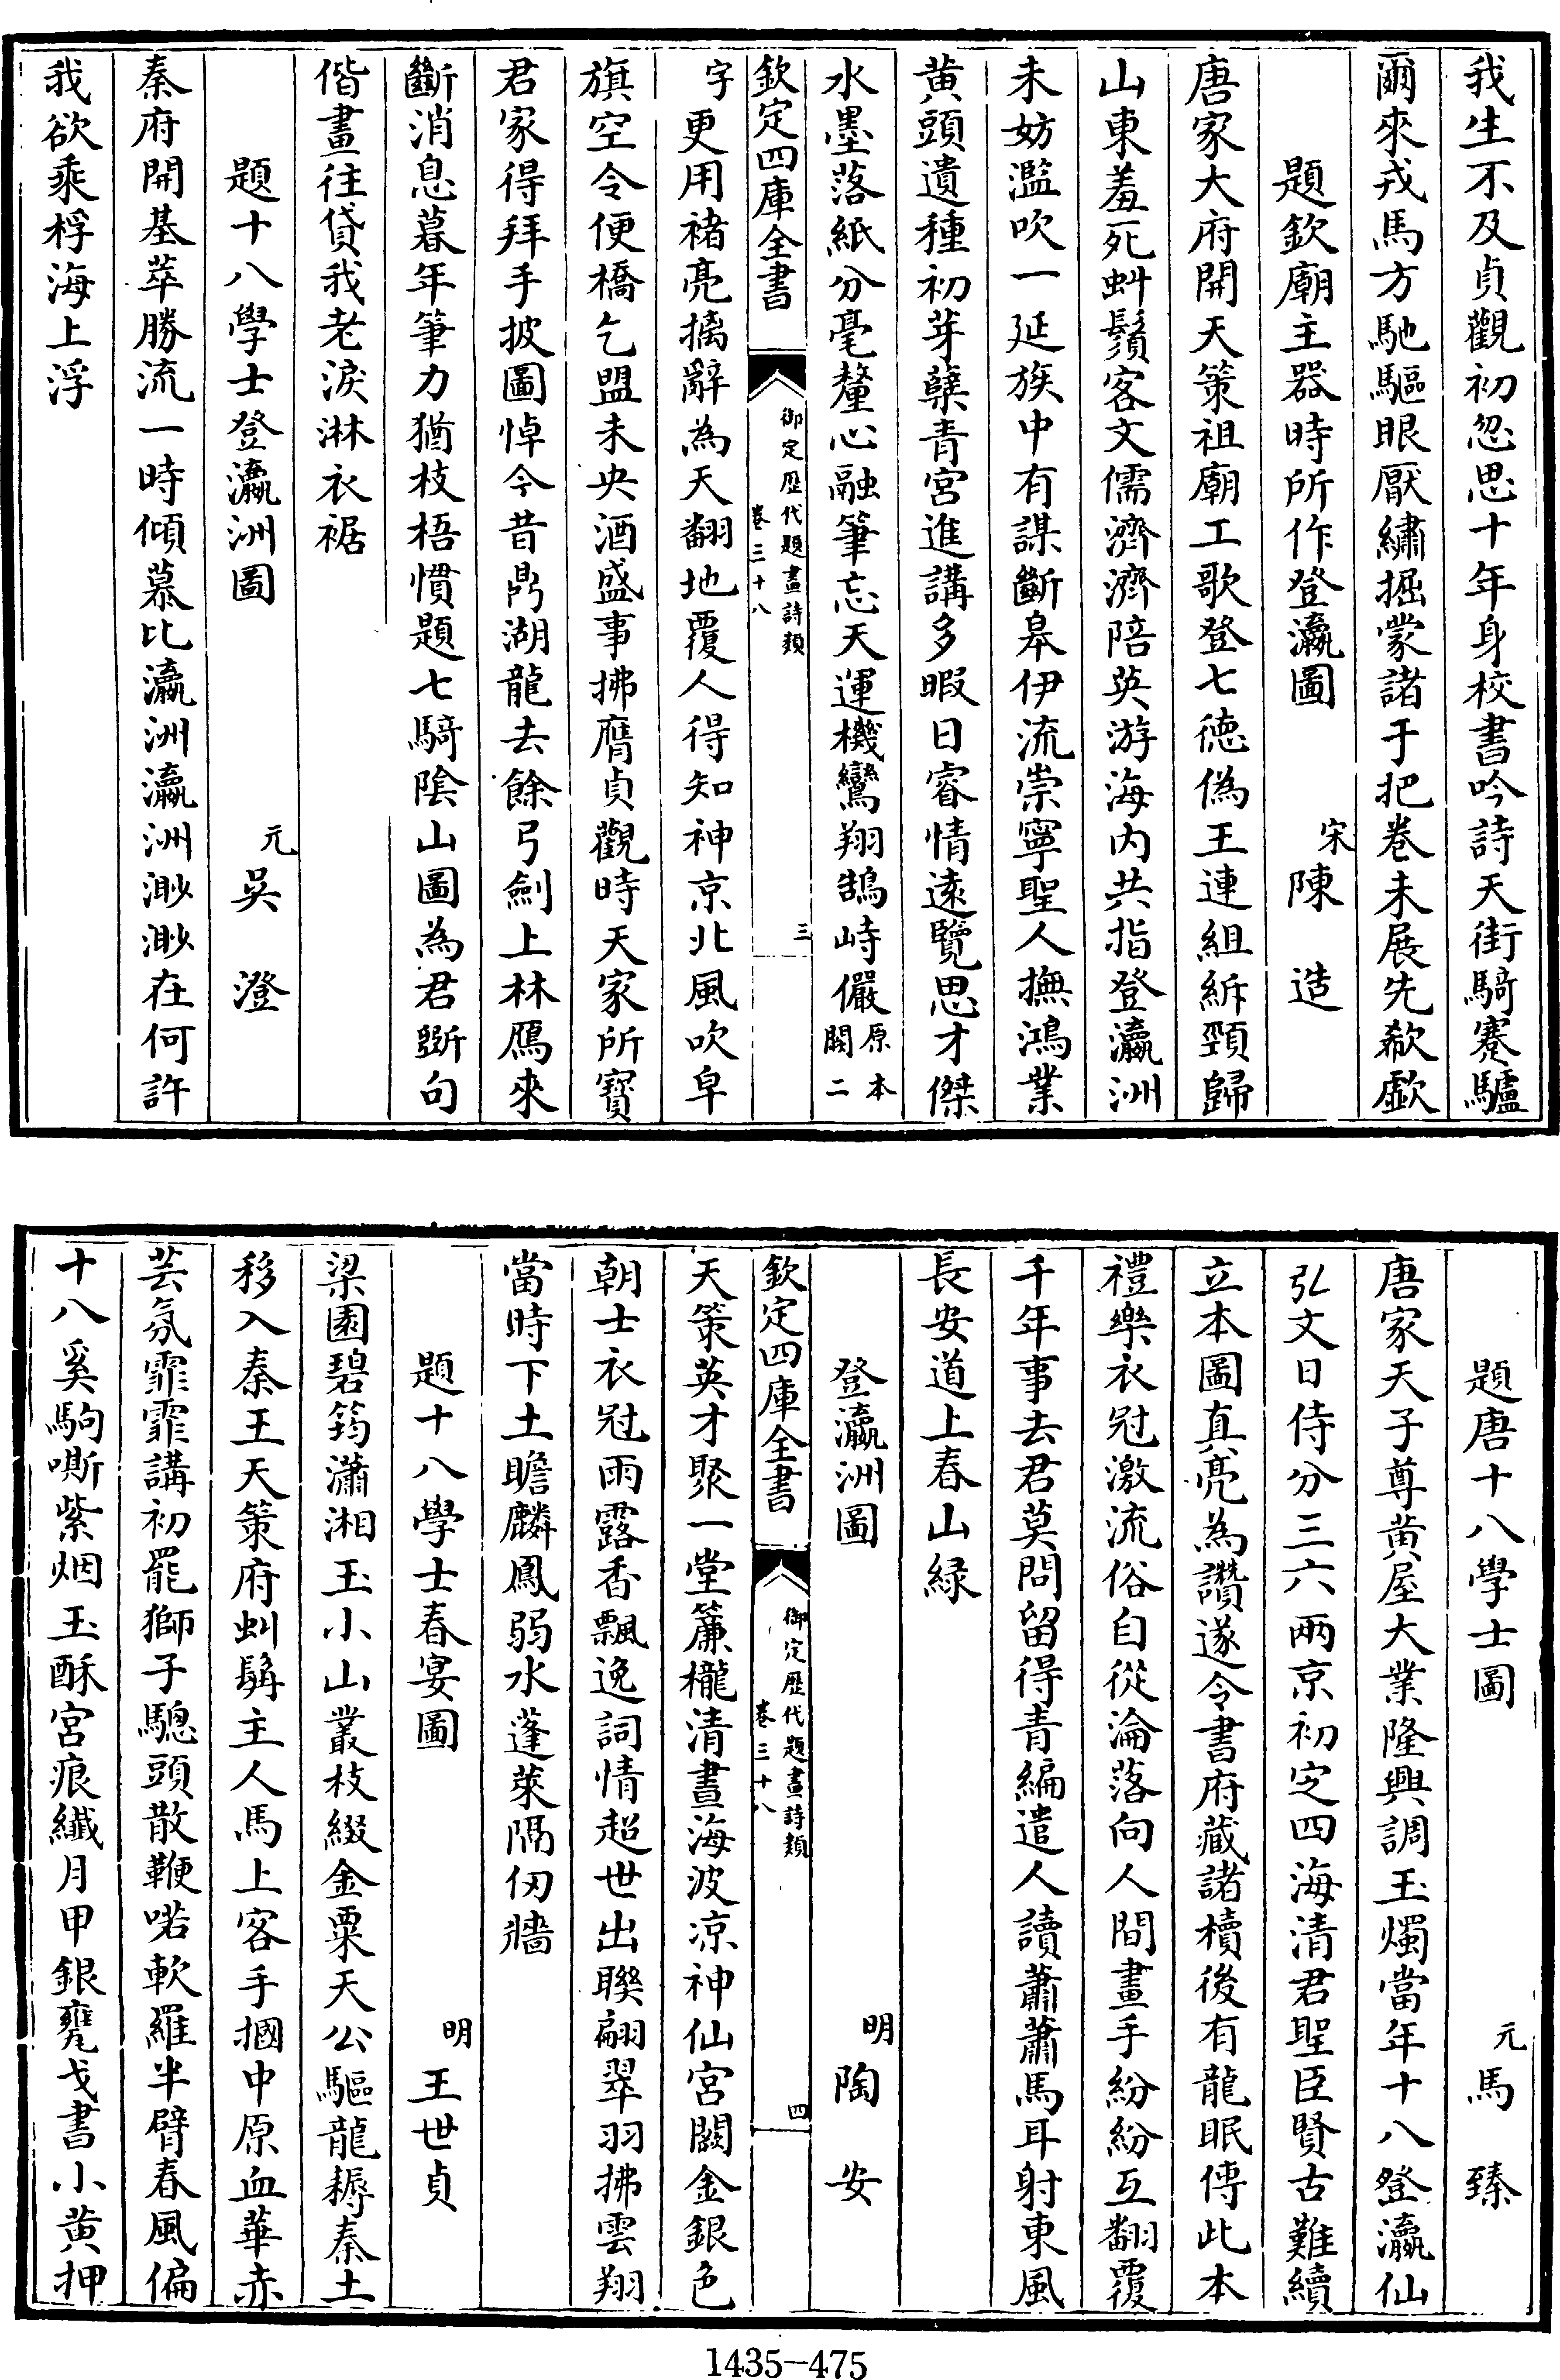 我生不及貞觀初忽思十年身校書吟詩天街騎蹇驢
爾來戎馬方馳驅眼厭繡掘蒙諸于把卷未展先欷歔
題欽廟主器時所作登瀛圖
宋陳造
唐家大府開天策祖廟工歌登七德偽王連組訴頸歸
山東羞死虯鬚客文儒濟濟陪英游海內共指登瀛洲
未妨濫吹一延族中有謀斷皋伊流崇寧聖人撫鴻業
黄頭遺種初芽蘖青宮進講多暇日睿情遠覽思才傑
水墨落紙分毫釐心融筆忘天運機鸞翔鵠峙儼原本闕二
欽定四庫全書
御定歷代題畫詩類
卷三十八
三
字更用褚亮摛辭為天翻地覆人得知神京北風吹皁
旗空令便橋乞盟未央酒盛事拂膺貞觀時天家所寳
君家得拜手披圖悼今昔鼎湖龍去餘弓劍上林鴈來
斷消息暮年筆力猶枝梧慣題七騎陰山圖為君斲句
偕畫往貸我老淚淋衣裾
題十八學士登瀛洲圖
元吳澄
秦府開基萃勝流一時傾慕比瀛洲瀛洲渺渺在何許
我欲乘桴海上浮
題唐十八學士圖
元馬臻
唐家天子尊黄屋大業隆興調玉燭當年十八登瀛仙
弘文日侍分三六兩京初定四海清君聖臣賢古難續
立本圖真亮為讚遂令書府藏諸櫝後有龍眠傳此本
禮樂衣冠激流俗自從淪落向人間畫手紛紛互翻覆
千年事去君莫問留得青編遣人讀蕭蕭馬耳射東風
長安道上春山緑
登瀛洲圖
明陶安
欽定四庫全書
御定歷代題畫詩類
卷三十八
四
天策英才聚一堂簾櫳清晝海波凉神仙宮闕金銀色
朝士衣冠雨露香飄逸詞情超世出聯翩翠羽拂雲翔
當時下土瞻麟鳳弱水蓬萊隔仞牆
題十八學士春宴圖
明王世貞
梁園碧筠瀟湘玉小山叢枝綴金粟天公驅龍耨秦土
移入秦王天策府虯鬚主人馬上客手摑中原血華赤
芸氛霏霏講初罷獅子驄頭散鞭喏軟羅半臂春風偏
十八奚駒嘶紫烟玉酥宮痕纖月甲銀甕戈書小黄押
1435-475